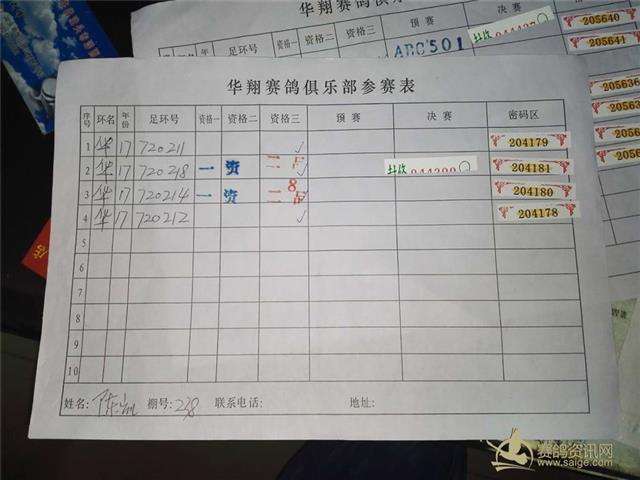 华翔赛鸽俱乐部
足环号 资格一 资格二 资格三 预赛 决赛
ABC501
205640
205641
华翔赛鸽俱乐部参赛表
序号 环名 年份 足环号 资格一 资格二 资格三 预赛 决赛 密码区
1 华 17 720211 ✓ 204179
2 华 17 720218 一 资 204181
3 华 17 720214 一 资 204180
4 华 17 720212 ✓ 204178
5
6
7
8
9
10
姓名: 棚号: 238 联系电话: 地址:
赛鸽资讯网
www.saige.com